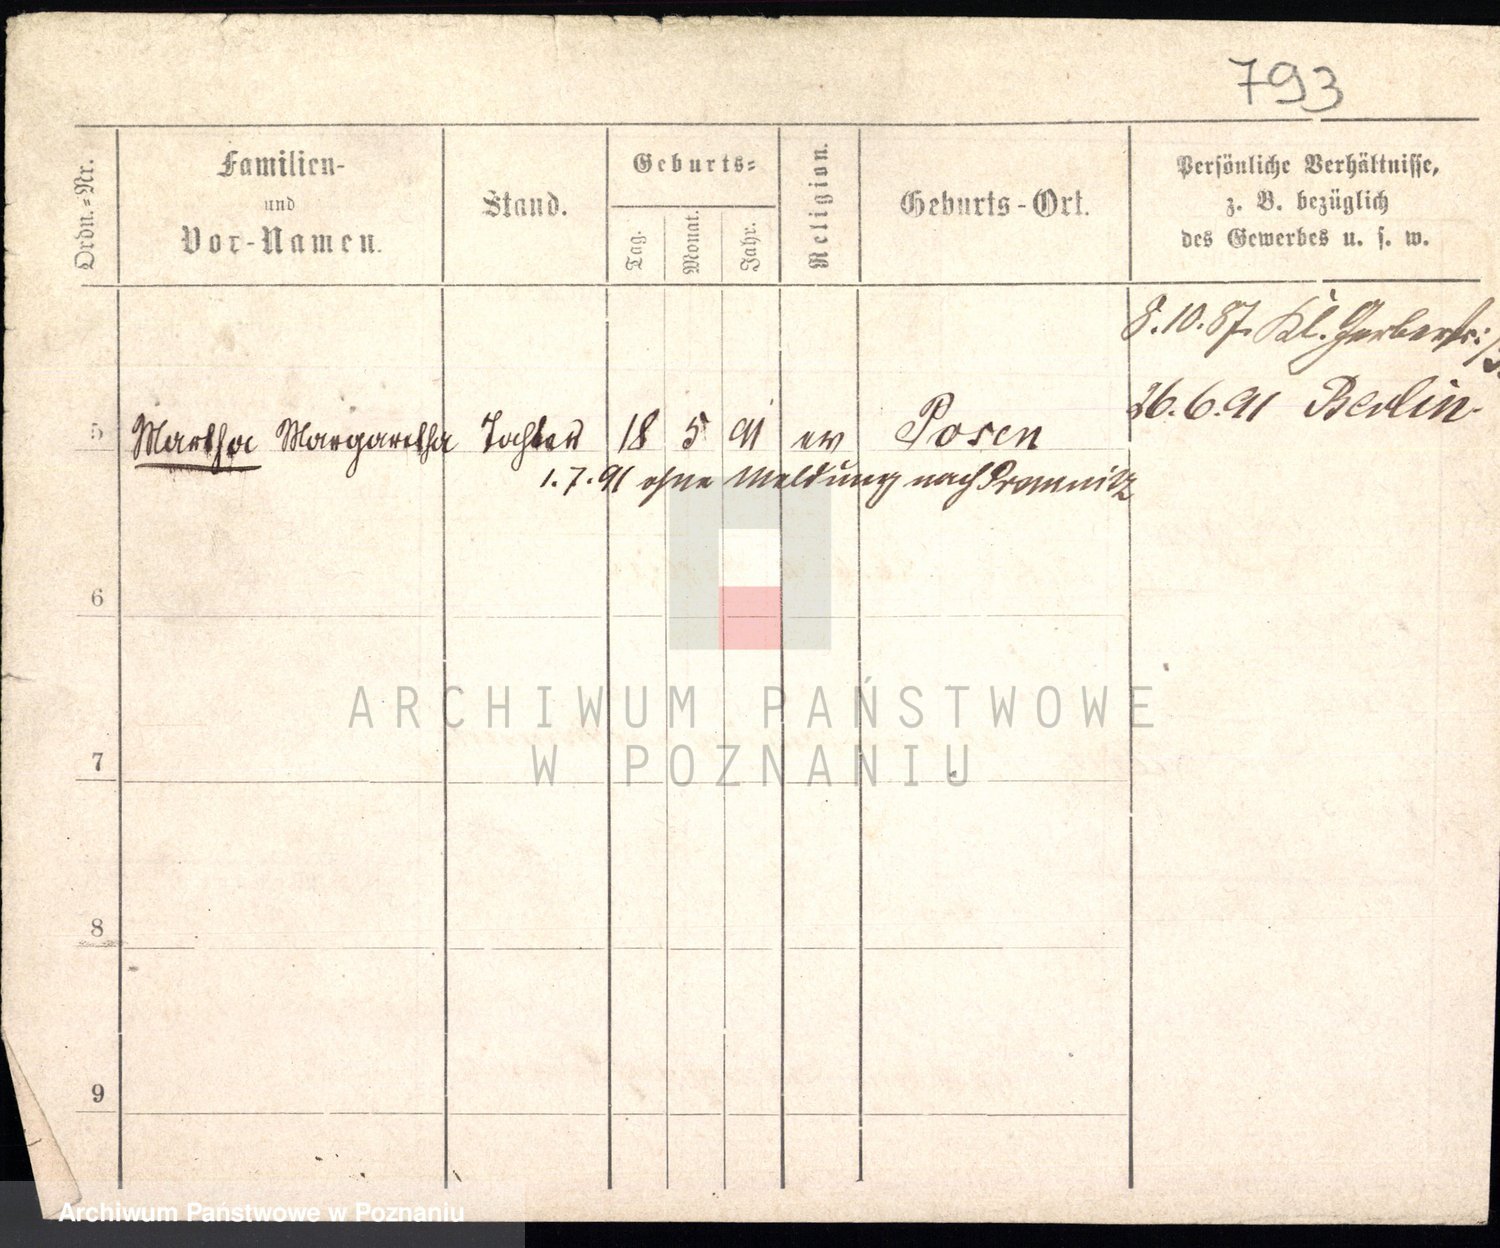 793
Ordn.=Nr.
Familien-
und
Vor-Namen.
Stand.
Geburts=
Tag.
Monat.
Jahr.
Religion.
Geburts-Ort.
Persönliche Verhältnisse,
z. B. bezüglich
des Gewerbes u. s. w.
8.10.87. Kl. Gerberstr:
26.6.91 Berlin.
5 Martha Margaretha Tochter 18 5 91 ev Posen
1.7.91 ohne Meldung nach Promnitz
6
7
8
9
ARCHIWUM PAŃSTWOWE
W POZNANIU
Archiwum Państwowe w Poznaniu